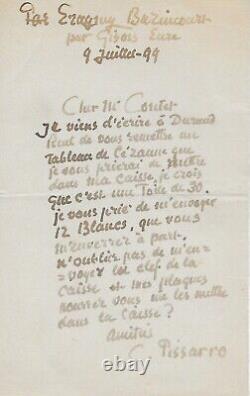 Par Eragny Bazincourt
par Gisors Eure
9 Juillet-99
Cher Mr Contet
Je viens d'écrire à Durand
Ruel de vous remettre un
Tableau de Cézanne que
je vous prierai de mettre
dans ma Caisse, je crois
que c'est une Toile de 30.
je vous prie de m'envoyer
12 Blancs, que vous
m'enverrez à part.
n'oubliez pas de m'en=
=voyer la clef de la
caisse et mes plaques
pourrez vous me les mettre
dans la Caisse?
amitiés
C. Pissarro
© ebay